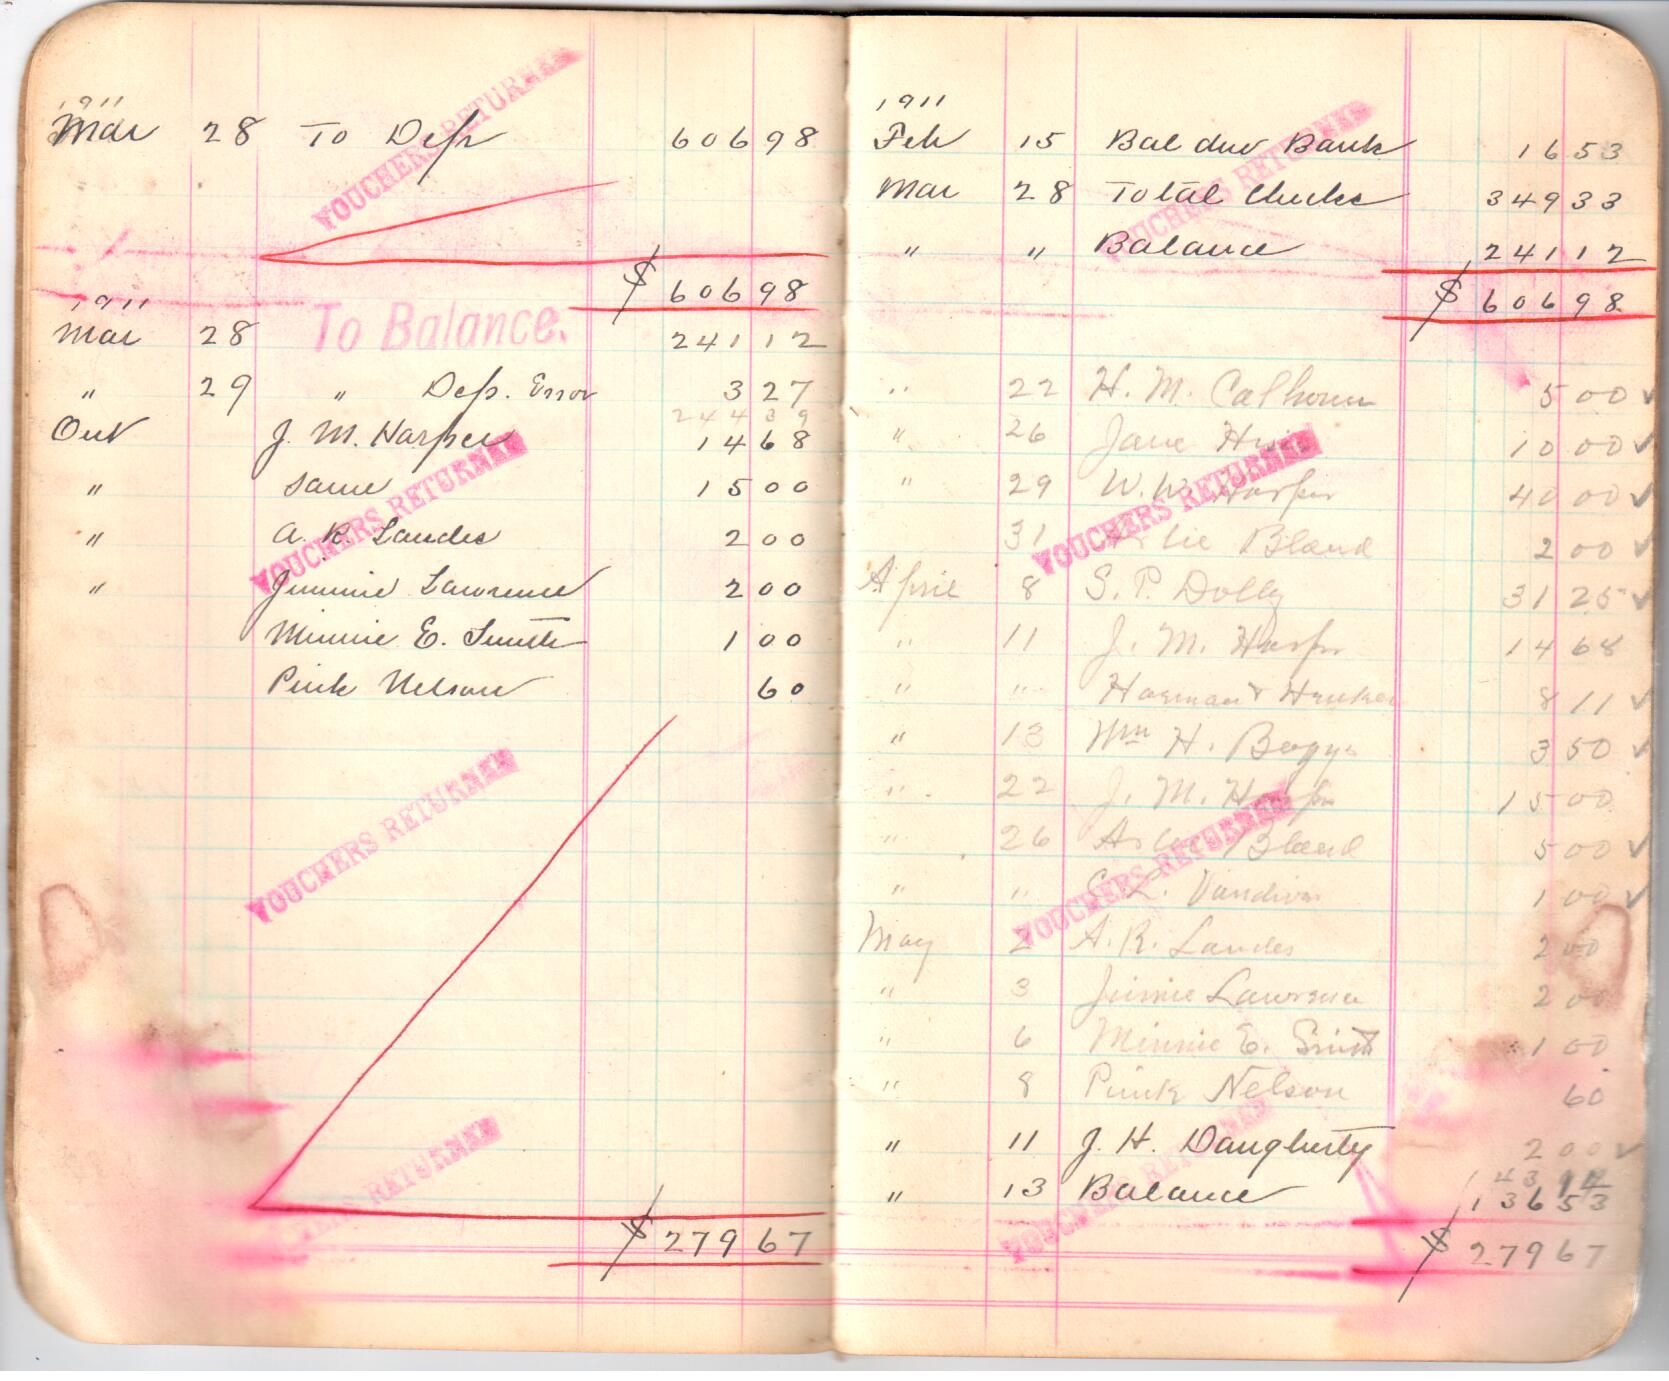 1911
Mar 28 To Dep 606 98
VOUCHERS RETURNED
$ 606 98
1911
Mar 28 To Balance. 241 12
" 29 " Dep. Error 3 27
244 39
Out J. M. Harper 14 68
" same 15 00
VOUCHERS RETURNED
" A. R. Landes 2 00
" Jennie Lawrence 2 00
Minnie E. Smith 1 00
Pink Nelson 60
VOUCHERS RETURNED
VOUCHERS RETURNED
$ 279 67
1911
Feb 15 Bal due Bank 16 53
Mar 28 Total Checks 349 33
VOUCHERS RETURNED
" " Balance 241 12
$ 606 98
" 22 H. M. Calhoun 5 00 ✓
" 26 Jane 10 00 ✓
" 29 W. W. Harper 40 00 ✓
VOUCHERS RETURNED
31 Arlie Bland 2 00 ✓
April 8 S. P. Dolly 31 25 ✓
" 11 J. M. Harper 14 68
" " Harman & 8 11 ✓
" 13 Wm H. 3 50 ✓
" 22 J. M. Harper 15 00
" 26 Arlie Bland 5 00 ✓
VOUCHERS RETURNED
" " L. Vandiver 1 00 ✓
May 2 A. R. Landes 2 00
" 3 Jennie Lawrence 2 00
" 6 Minnie E. Smith 1 00
" 8 Pink Nelson 60
" 11 J. H. Daugherty 2 00 ✓
143 14
" 13 Balance 136 53
VOUCHERS RETURNED
$ 279 67